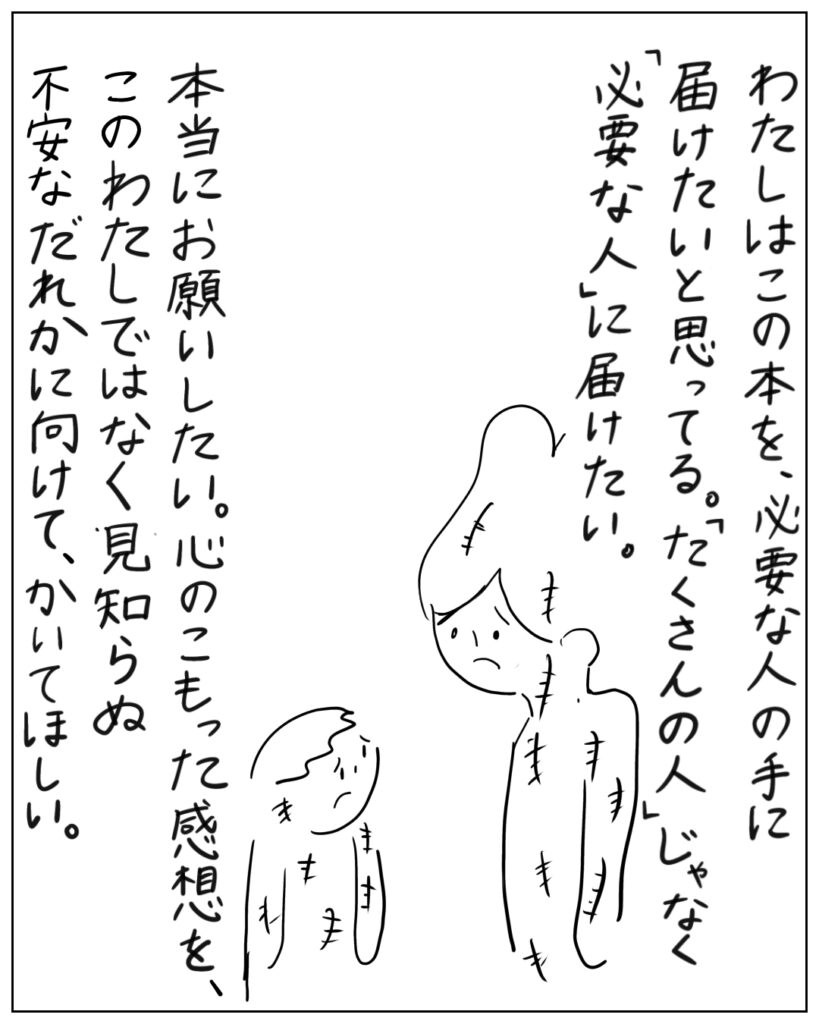 わたしはこの本を、必要な人の手に
届けたいと思ってる。「たくさんの人」じゃなく
「必要な人」に届けたい。
本当にお願いしたい。心のこもった感想を、
このわたしではなく見知らぬ
不安なだれかに向けて、かいてほしい。